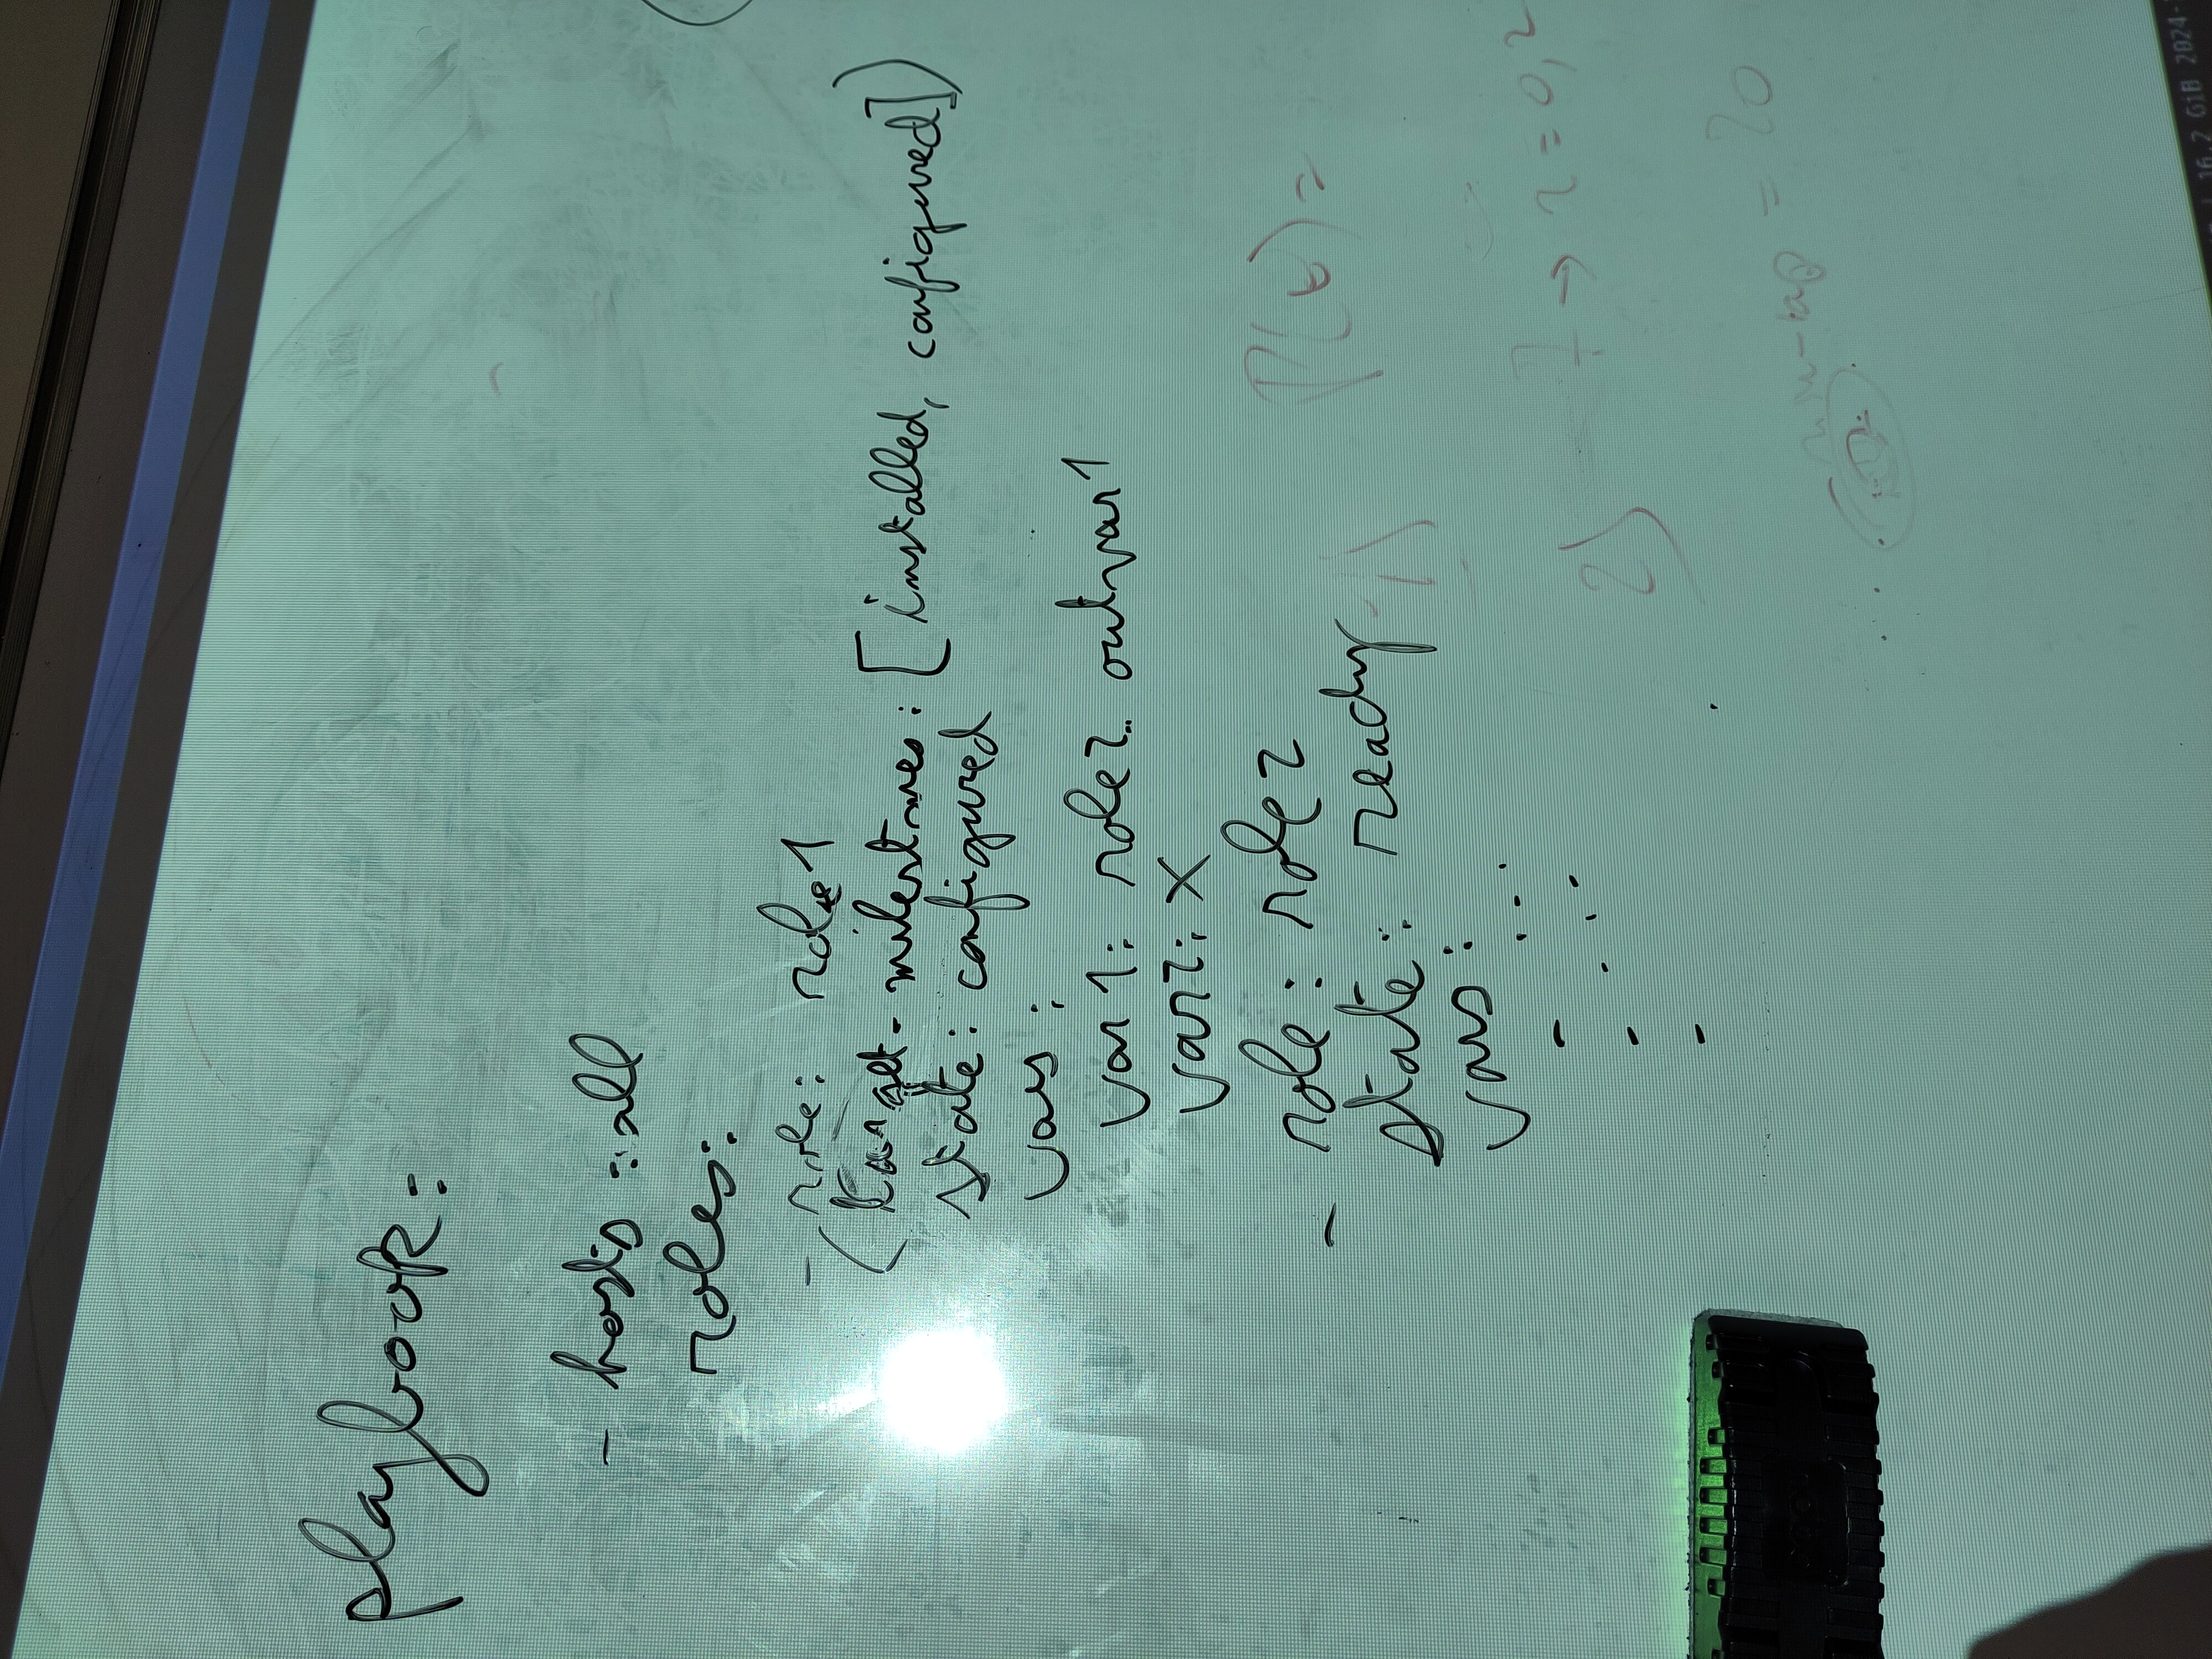 playbook:
- hosts: all
roles:
- role: role1
( target-milestones: [installed, configured])
state: configured
vars:
var1: role2.outvar1
var2: X
- role: role2
state: ready
vars:
1)
7 → r = 0,2
2)
= 20
16.2 GiB 2024-